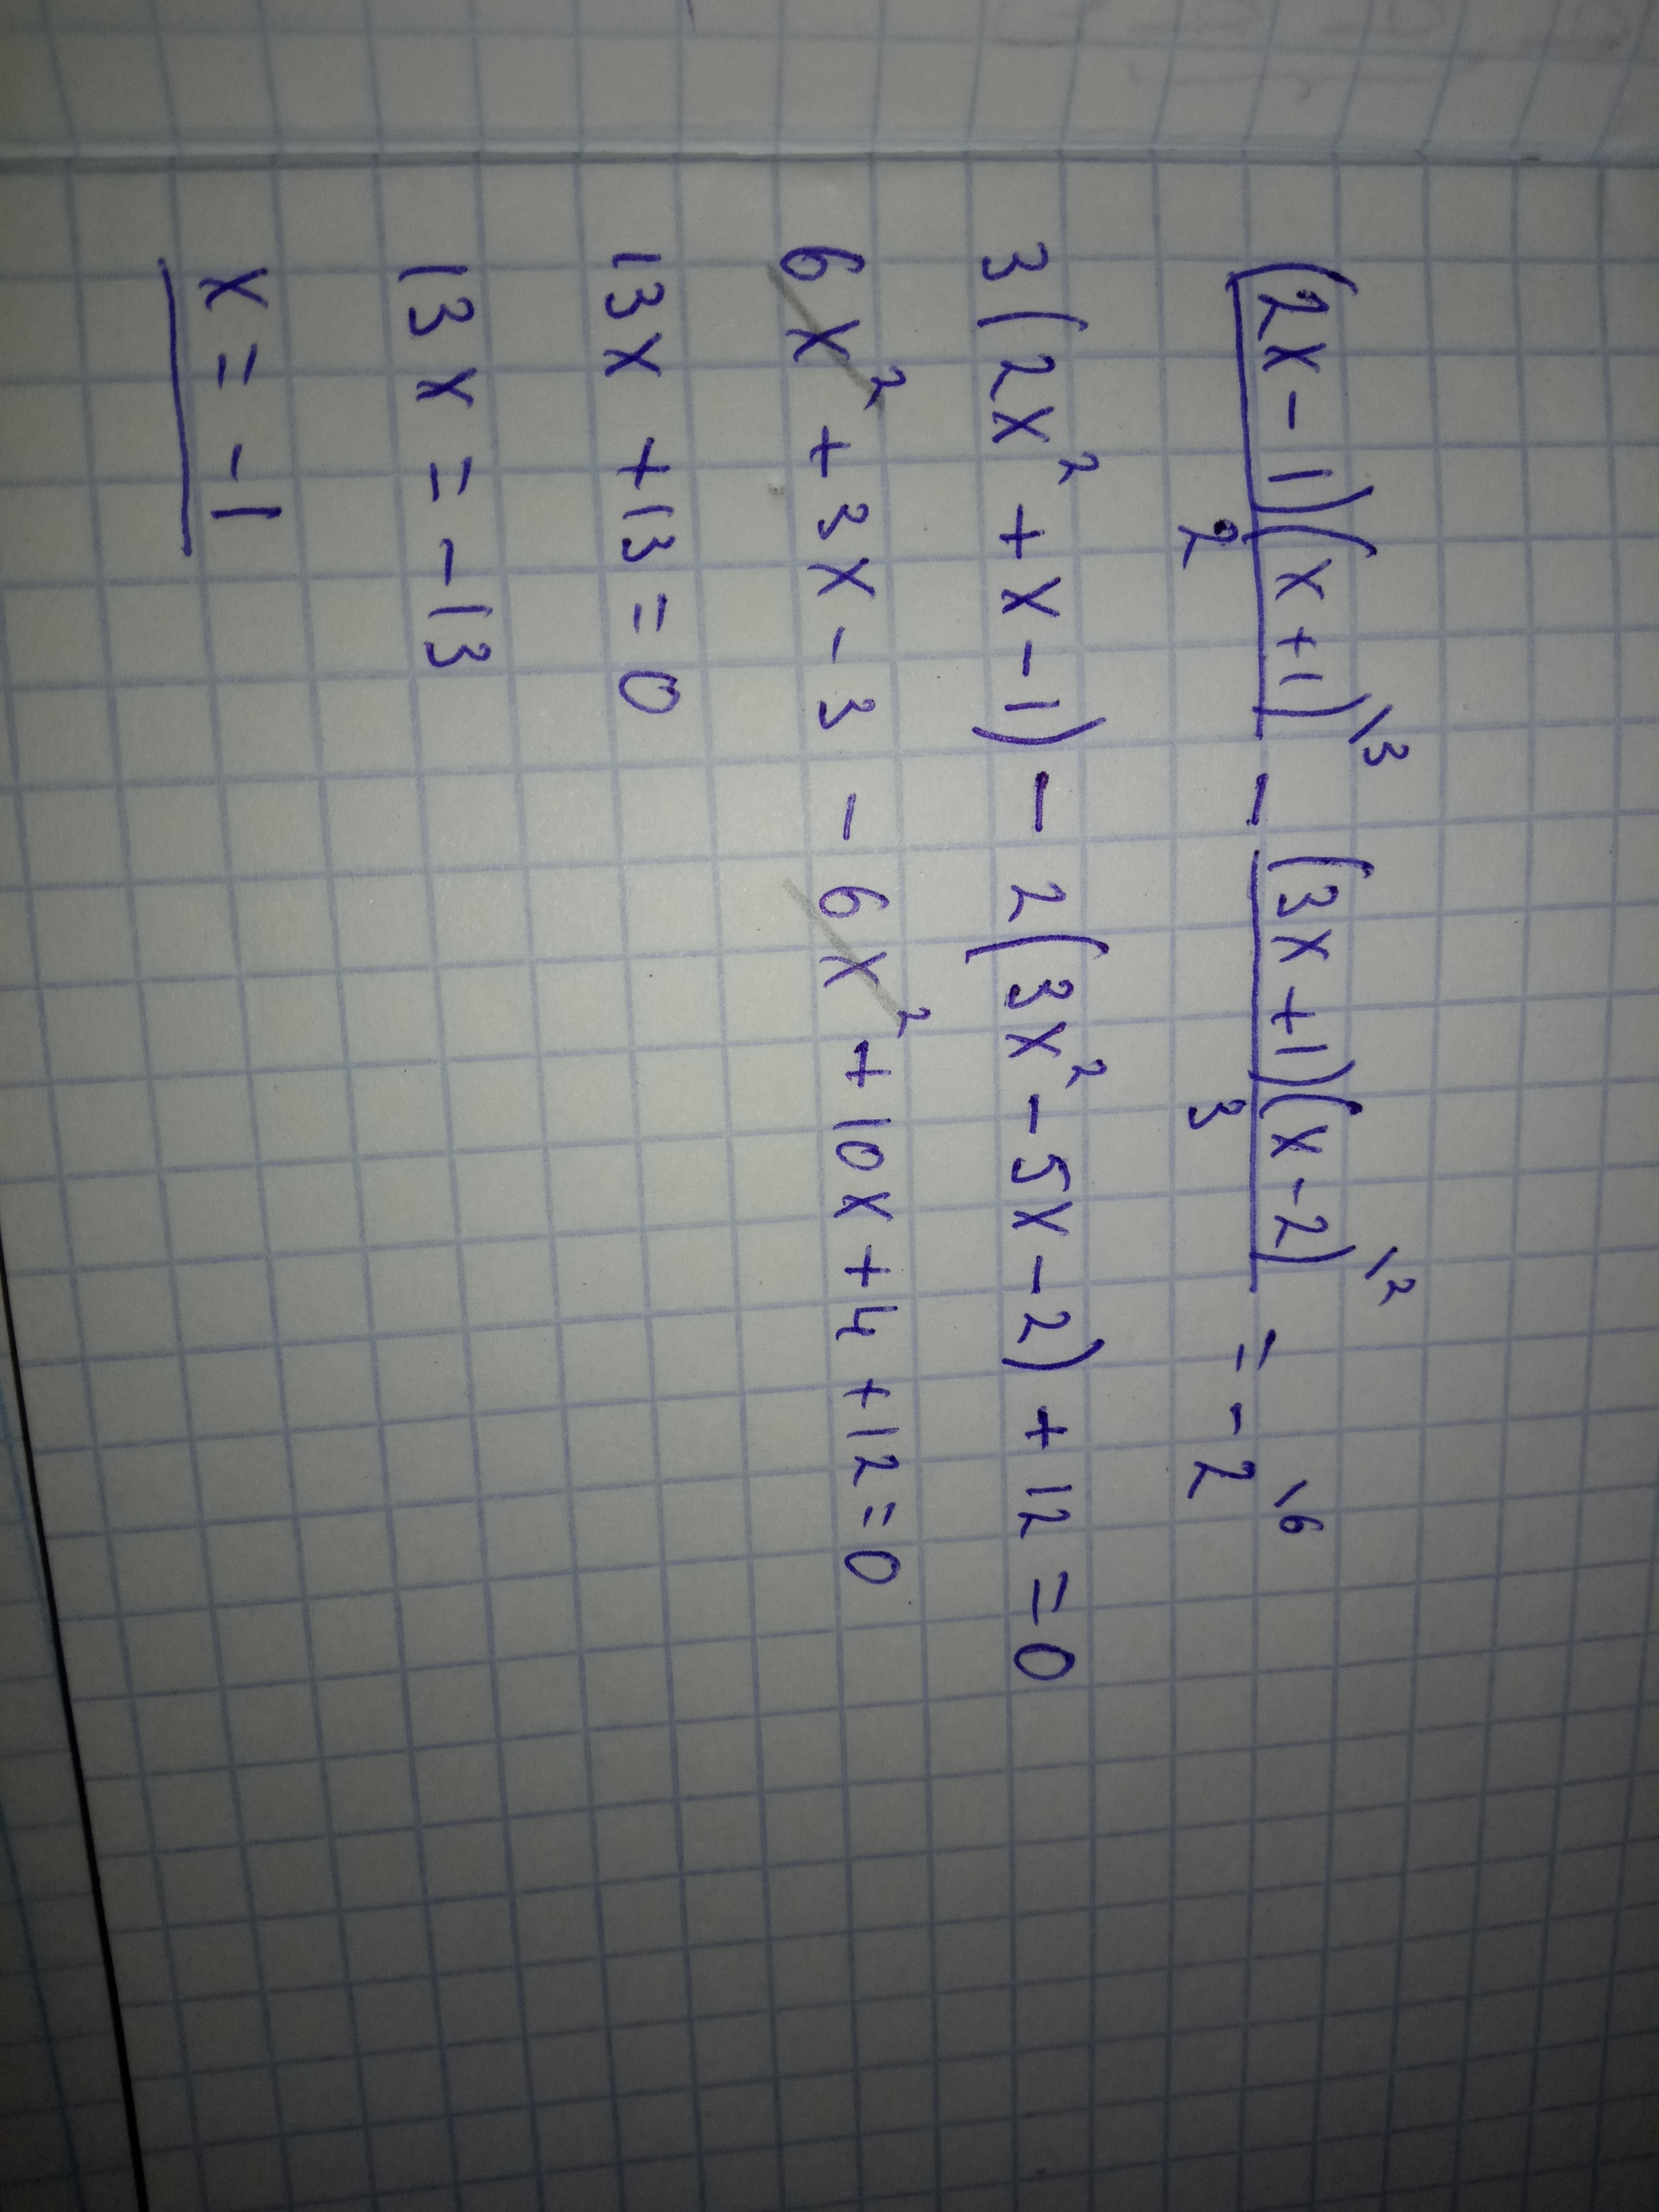 (2x-1)(x+1)\3 / 2 - (3x+1)(x-2)\2 / 3 = -2\6
3(2x²+x-1) - 2(3x²-5x-2) + 12 = 0
6x² + 3x - 3 - 6x² + 10x + 4 + 12 = 0
13x + 13 = 0
13x = -13
x = -1